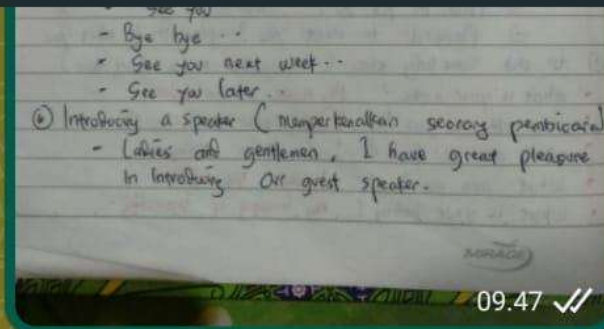 - See you
- Bye bye ..
- See you next week ..
- See you later.
⑥ Introducing a speaker ( memperkenalkan seorang pembicara)
- Ladies and gentlemen, I have great pleasure
In Introducing Our guest speaker.
09.47